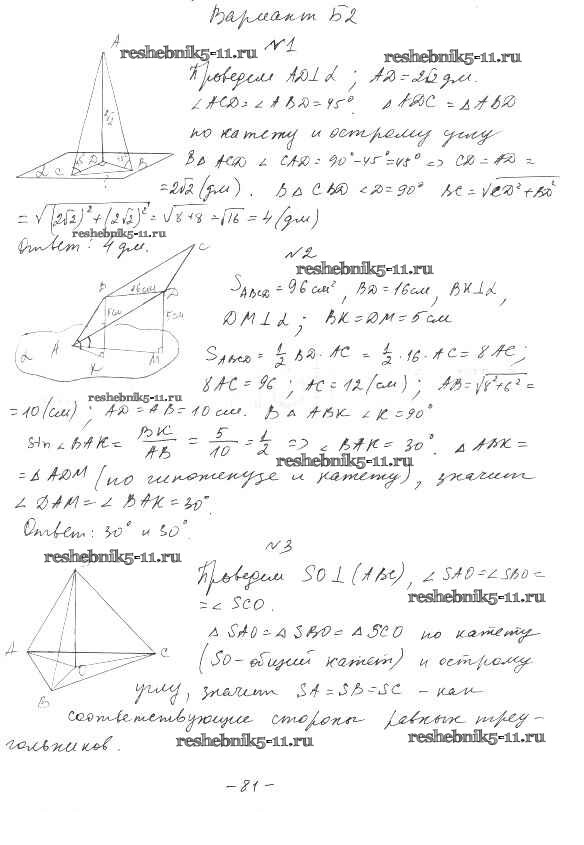 Вариант Б2
№1
reshebnik5-11.ru reshebnik5-11.ru
Проведем AD⊥α ; AD=2√2 дм.
∠ACD=∠ABD=45° △ADC=△ABD
по катету и острому углу
В △ ACD ∠CAD=90°-45°=45° ⇒ CD=AD=
=2√2 (дм). В △ CBD ∠D=90° BC=√CD²+BD²
=√(2√2)²+(2√2)²=√8+8=√16=4(дм)
reshebnik5-11.ru
Ответ: 4 дм.
A
2√2
45°
D
C
B
α
?
№2
reshebnik5-11.ru
S ABCD=96 см², BD=16 см, BK⊥α,
DM⊥α ; BK=DM=5 см
S ABCD=1/2 BD·AC=1/2·16·AC=8AC;
8AC=96 ; AC=12(см) ; AB=√8²+6²=
reshebnik5-11.ru
=10(см) ; AD=AB=10 см. В △ ABK ∠K=90°
sin∠BAK=BK/AB=5/10=1/2 ⇒ ∠BAK=30°. △ABK=
reshebnik5-11.ru
=△ADM (по гипотенузе и катету), значит
∠DAM=∠BAK=30°
Ответ: 30° и 30°.
C
B
16см
D
A
K
M
α
№3
reshebnik5-11.ru
Проведем SO⊥(ABC), ∠SAO=∠SBO=
reshebnik5-11.ru
=∠SCO.
△SAO=△SBO=△SCO по катету
(SO-общий катет) и острому
углу, значит SA=SB=SC - как
соответствующие стороны равных треу-
гольников.
reshebnik5-11.ru reshebnik5-11.ru
A
B
C
C
-81-